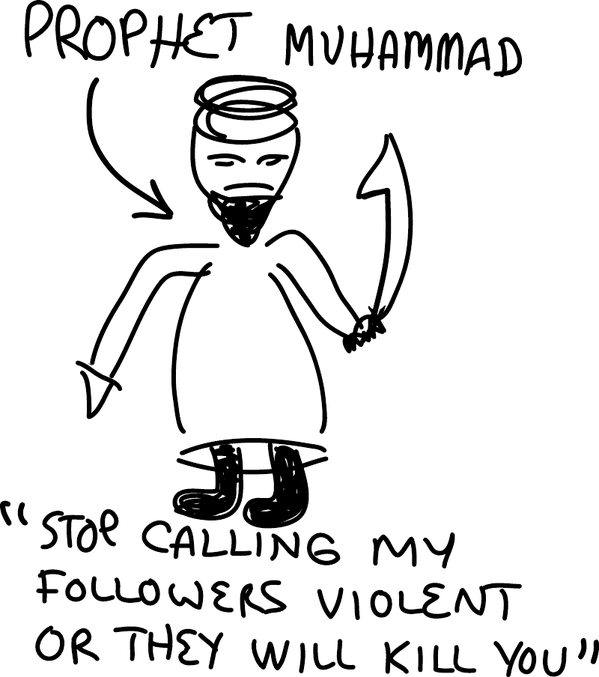 PROPHET MUHAMMAD
"STOP CALLING MY
FOLLOWERS VIOLENT
OR THEY WILL KILL YOU"